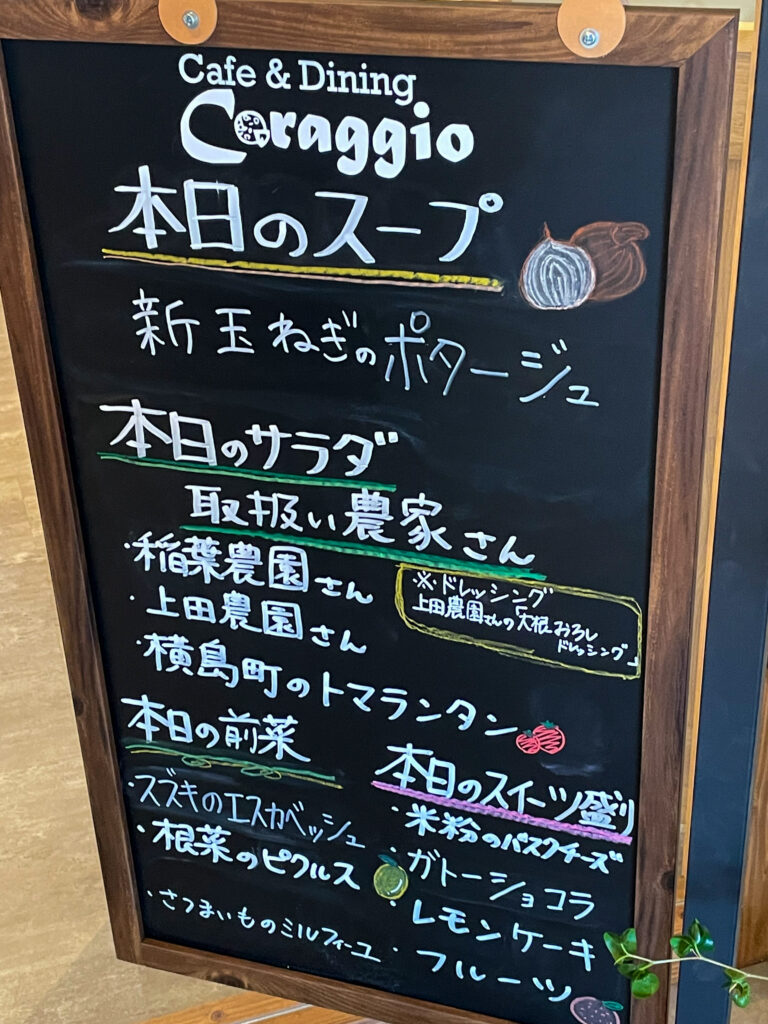 Cafe & Dining
Coraggio
本日のスープ
新玉ねぎのポタージュ
本日のサラダ
取扱い農家さん
・稲葉農園さん
・上田農園さん
・横島町のトマランタン
※ドレッシング
上田農園さんの大根おろし
ドレッシング」
本日の前菜
・スズキのエスカベッシュ
・根菜のピクルス
・さつまいものミルフィーユ
本日のスイーツ盛り
・米粉のバスクチーズ
・ガトーショコラ
・レモンケーキ
・フルーツ